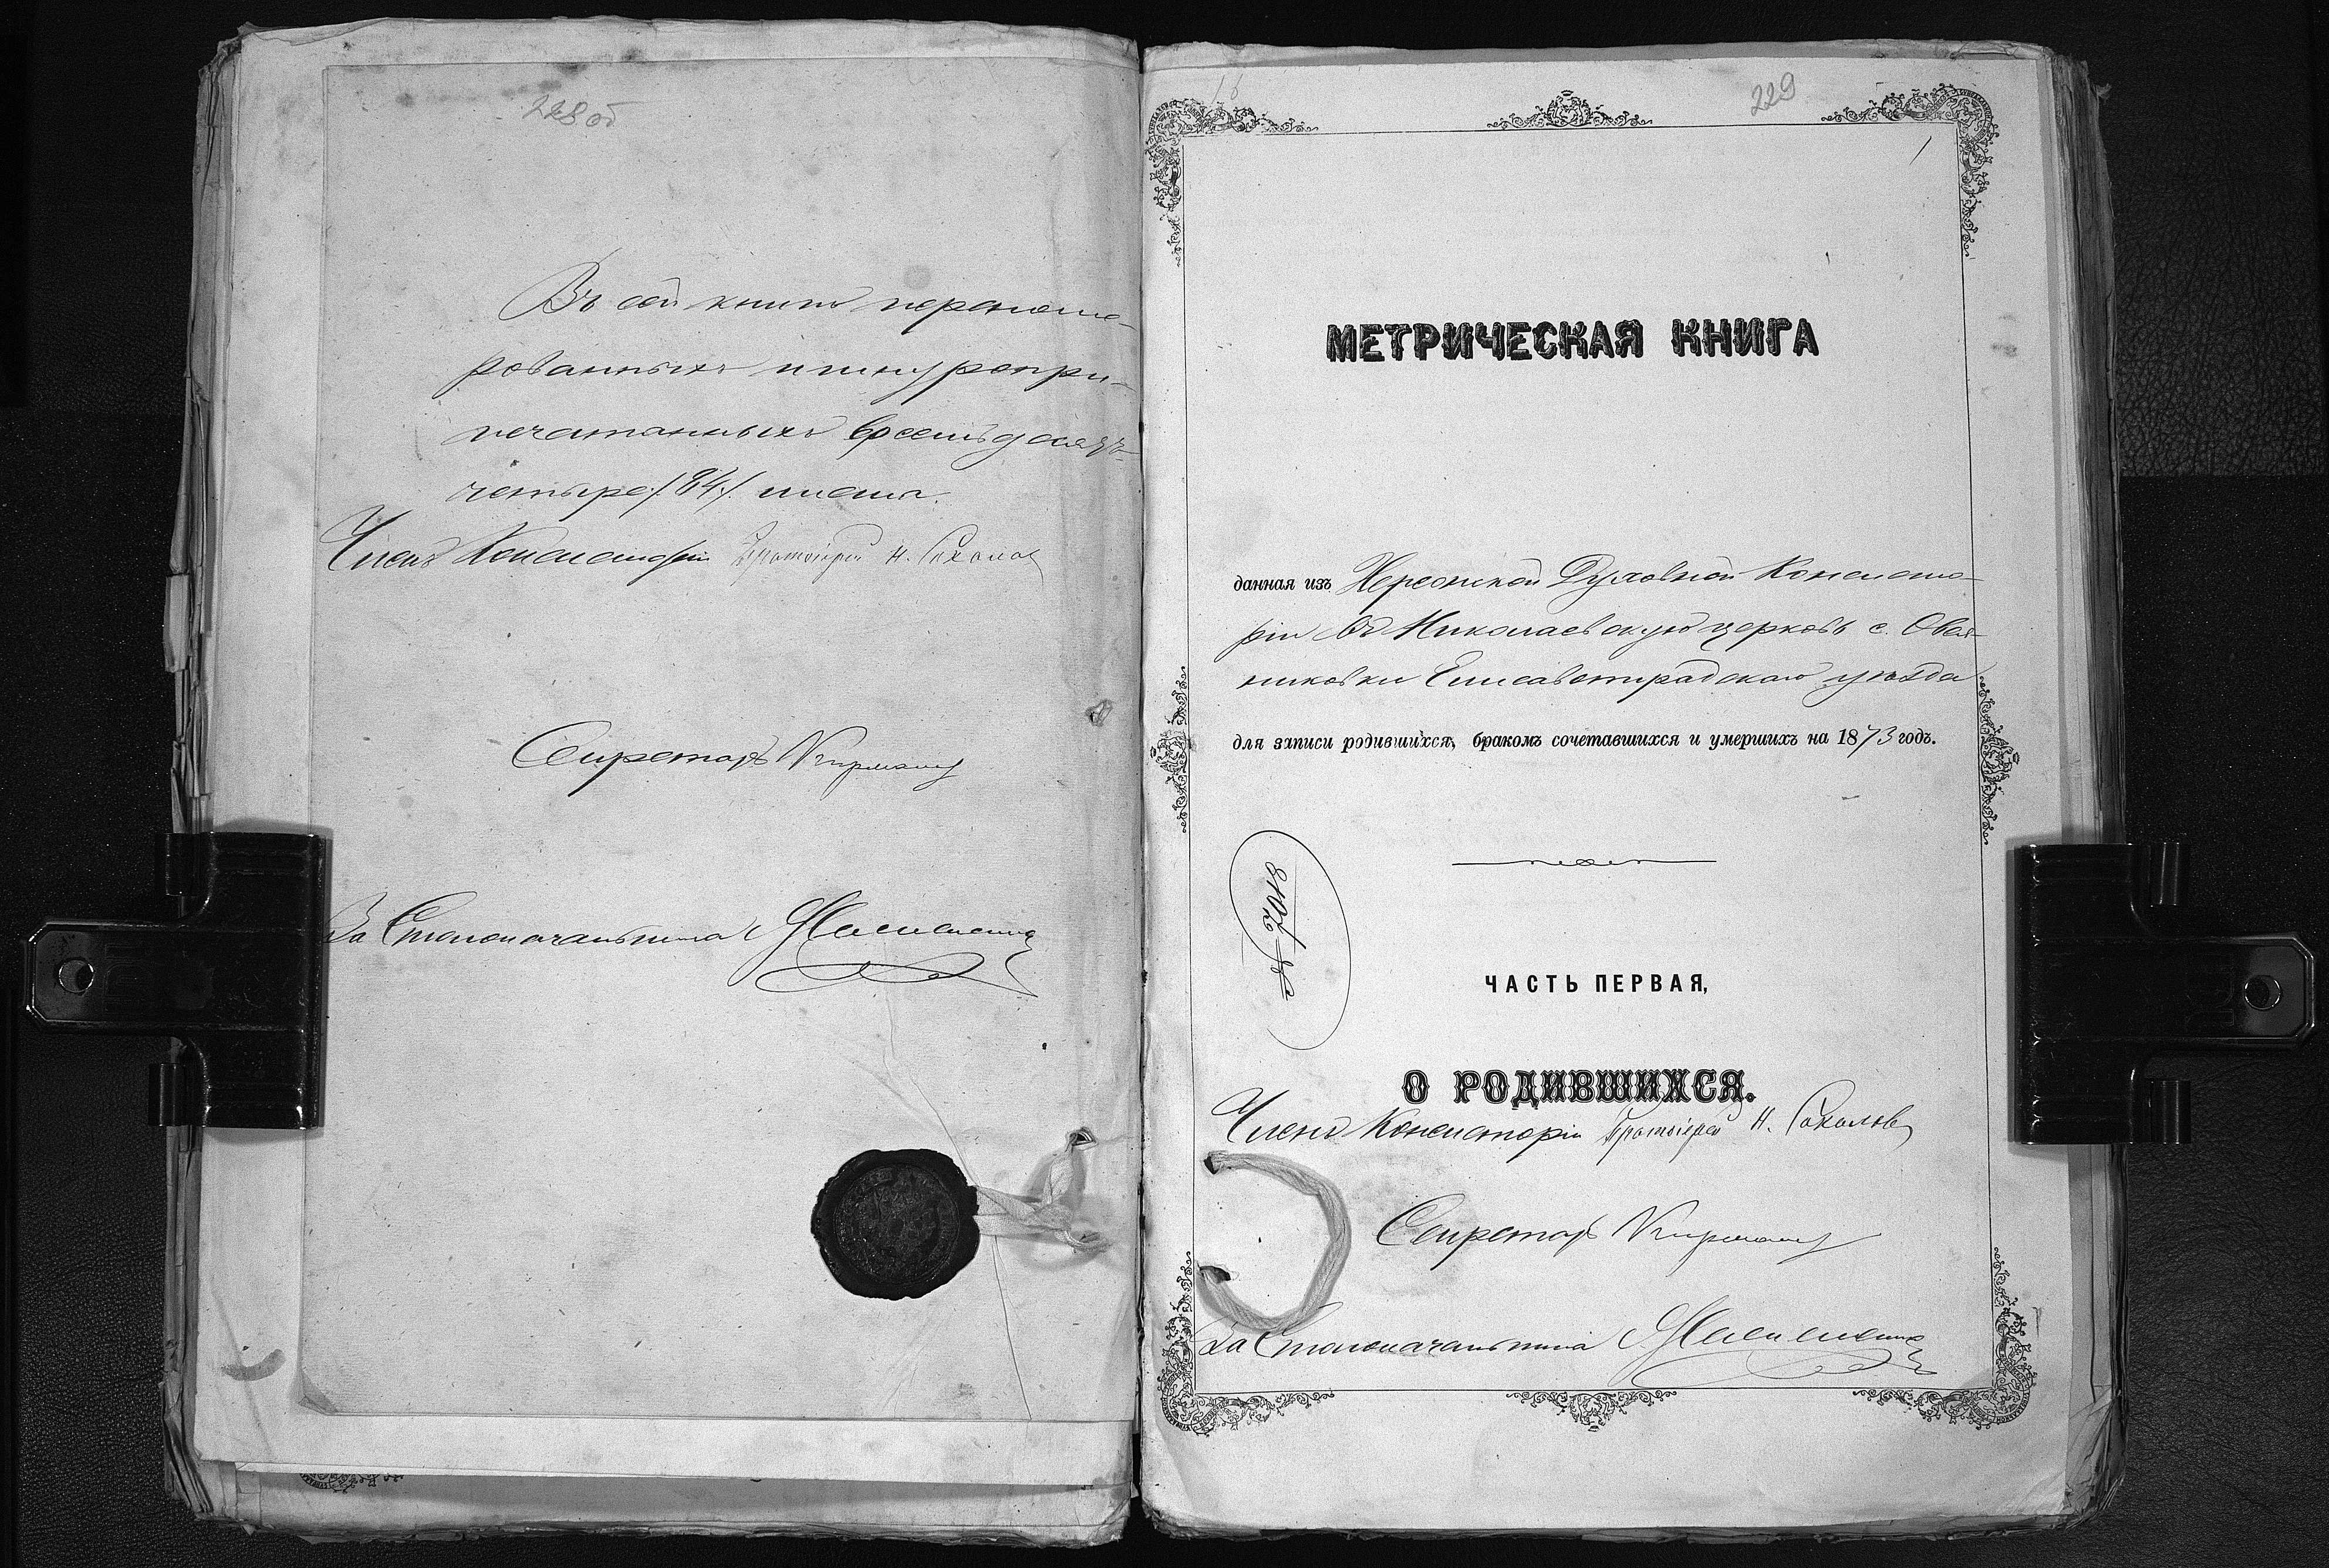 228 об
Въ сей книгѣ перенуме-
рованныхъ и шнуропри-
печатанныхъ восемьдесятъ
четыре /84/ листа.
Членъ Консисторіи Протоіерей Н. Соколов
Секретарь
За Столоначальника
229
1
МЕТРИЧЕСКАЯ КНИГА
данная изъ Херсонской Духовной Консисто-
ріи въ Николаевскую церковь с. Овся-
никовки Елисаветградскаго уѣзда
для записи родившихся, бракомъ сочетавшихся и умершихъ на 1873 годъ.
№ 8107
ЧАСТЬ ПЕРВАЯ,
О РОДИВШИХСЯ.
Членъ Консисторіи Протоіерей Н. Соколов
Секретарь
За Столоначальника